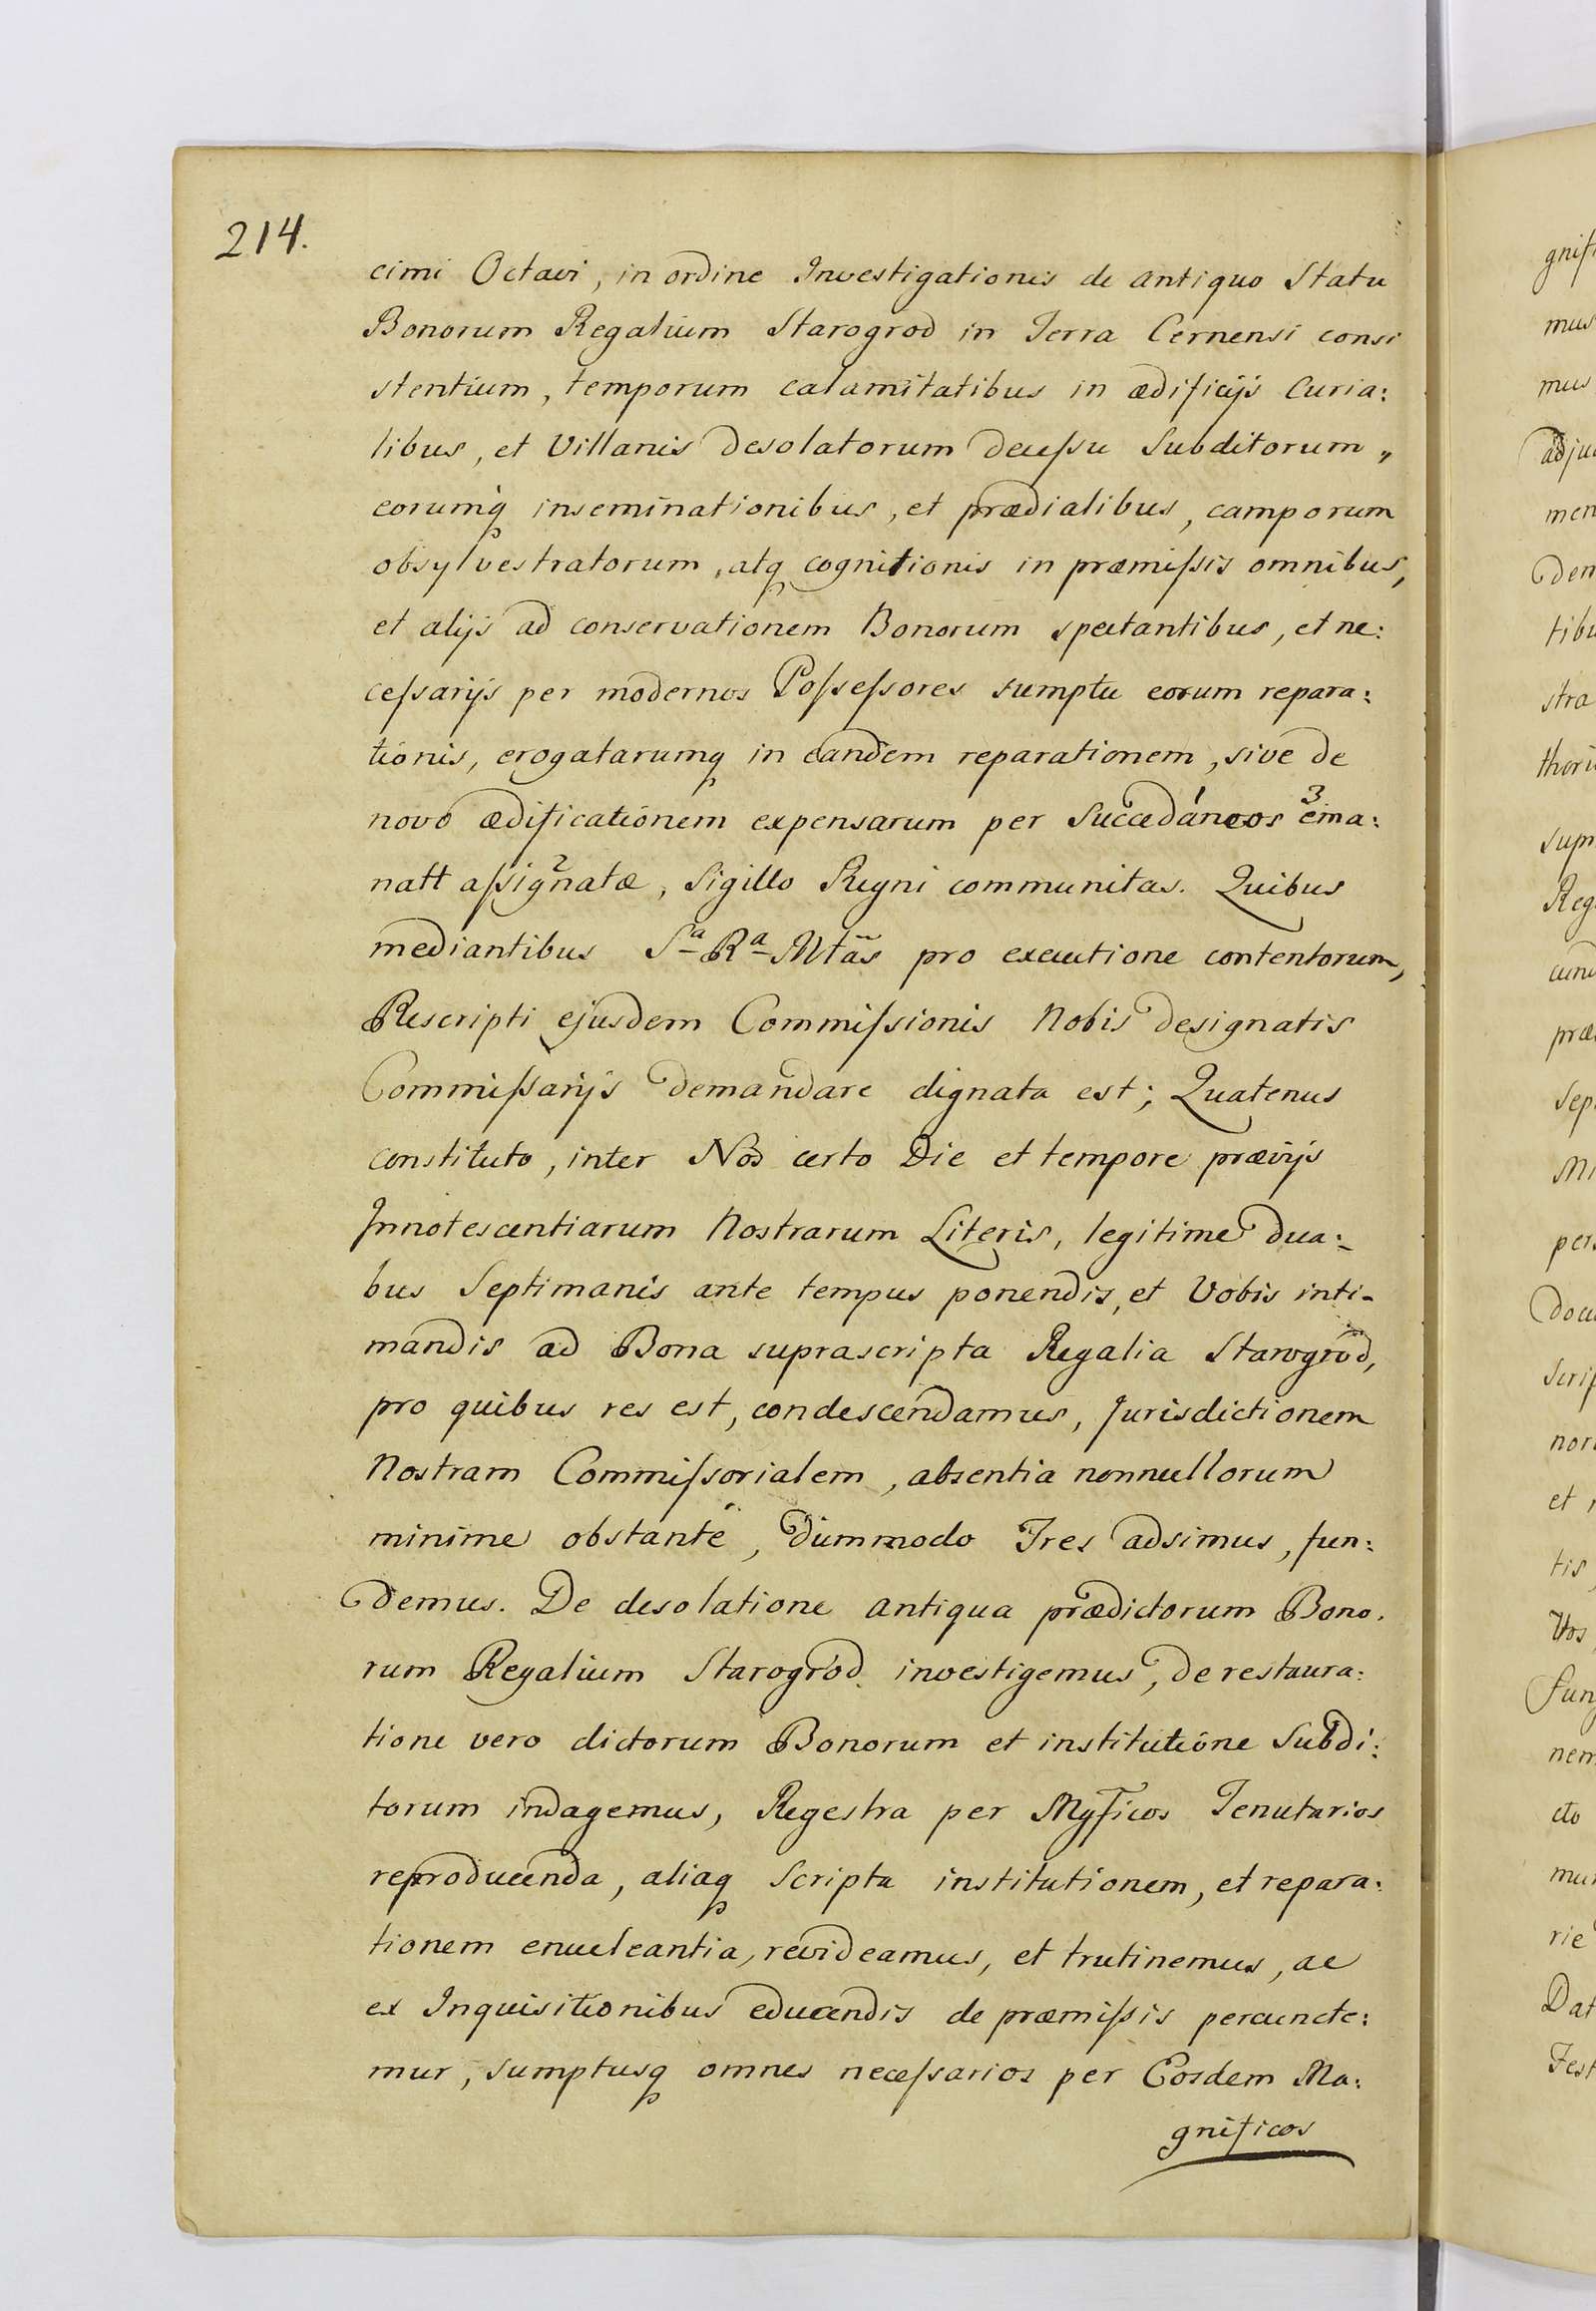 214.
cimi Octavi, in ordine Investigationis de antiquo Statu
Bonorum Regalium Starogrod in Terra Cernensi consi
stentium, temporum calamitatibus in ædificijs Curia:
libus, et Villanis desolatorum decessu Subditorum,
eorumq inseminationibus, et prædialibus, camporum
obsylvestratorum, atq cognitionis in præmissis omnibus,
et alijs ad conservationem Bonorum spectantibus, et ne:
cessarijs per modernos Possessores sumptu eorum repara:
tionis, erogatarumq in eandem reparationem, sive de
novo ædificationem expensarum per Succedáneos 3 ema:
natt assig2natæ, Sigillo Regni communitas. Quibus
mediantibus Sa Ra Mtãs pro executione contentorum,
Rescripti ejusdem Commissionis Nobis designatis
Commissarijs demandare dignata est; Quatenus
constituto, inter Nos certo Die et tempore prævijs
Innotescentiarum Nostrarum Literis, legitime dua:
bus Septimanis ante tempus ponendis, et Vobis inti-
mandis ad Bona suprascripta Regalia Starogrod,
pro quibus res est, condescendamus, Jurisdictionem
Nostram Commissorialem, absentia nonnullorum
minime obstante, dummodo Tres adsimus, fun:
demus. De desolatione antiqua prædictorum Bono.
rum Regalium Starogrod investigemus, de restaura:
tione vero dictorum Bonorum et institutione Subdi:
torum indagemus, Regestra per Mgficos Tenutarios
reproducenda, aliaq Scripta institutionem, et repara:
tionem enucleantia, revideamus, et trutinemus, ac
ex Inquisitionibus educendis de præmissis percuncte:
mur, sumptusq omnes necessarios per Eosdem Ma:
gnificos
gnifi
mus
mus
adju
men
dem
tibu
stra
thori
supr
Reg
præ
Sep.
per
scrip
nor
et
tis
fun
nem
cto
mu
rie
Dat
Fest